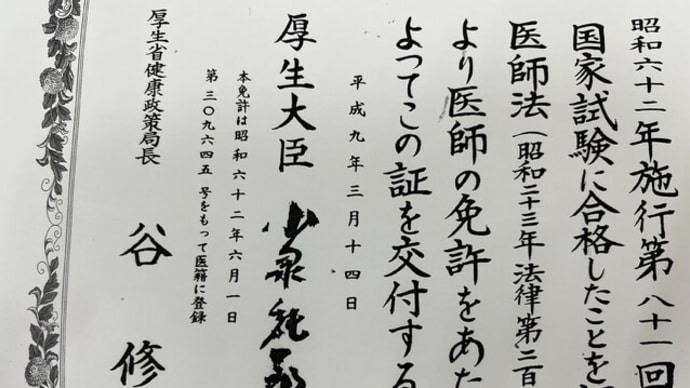 昭和六十二年施行第八十一回
国家試験に合格したことを
医師法（昭和二十三年法律第二百
より医師の免許をあた
よつてこの証を交付する
平成九年三月十四日
厚生大臣 小泉純
本免許は昭和六十二年六月一日
第三〇九六四五号をもって医籍に登録
厚生省健康政策局長 谷 修